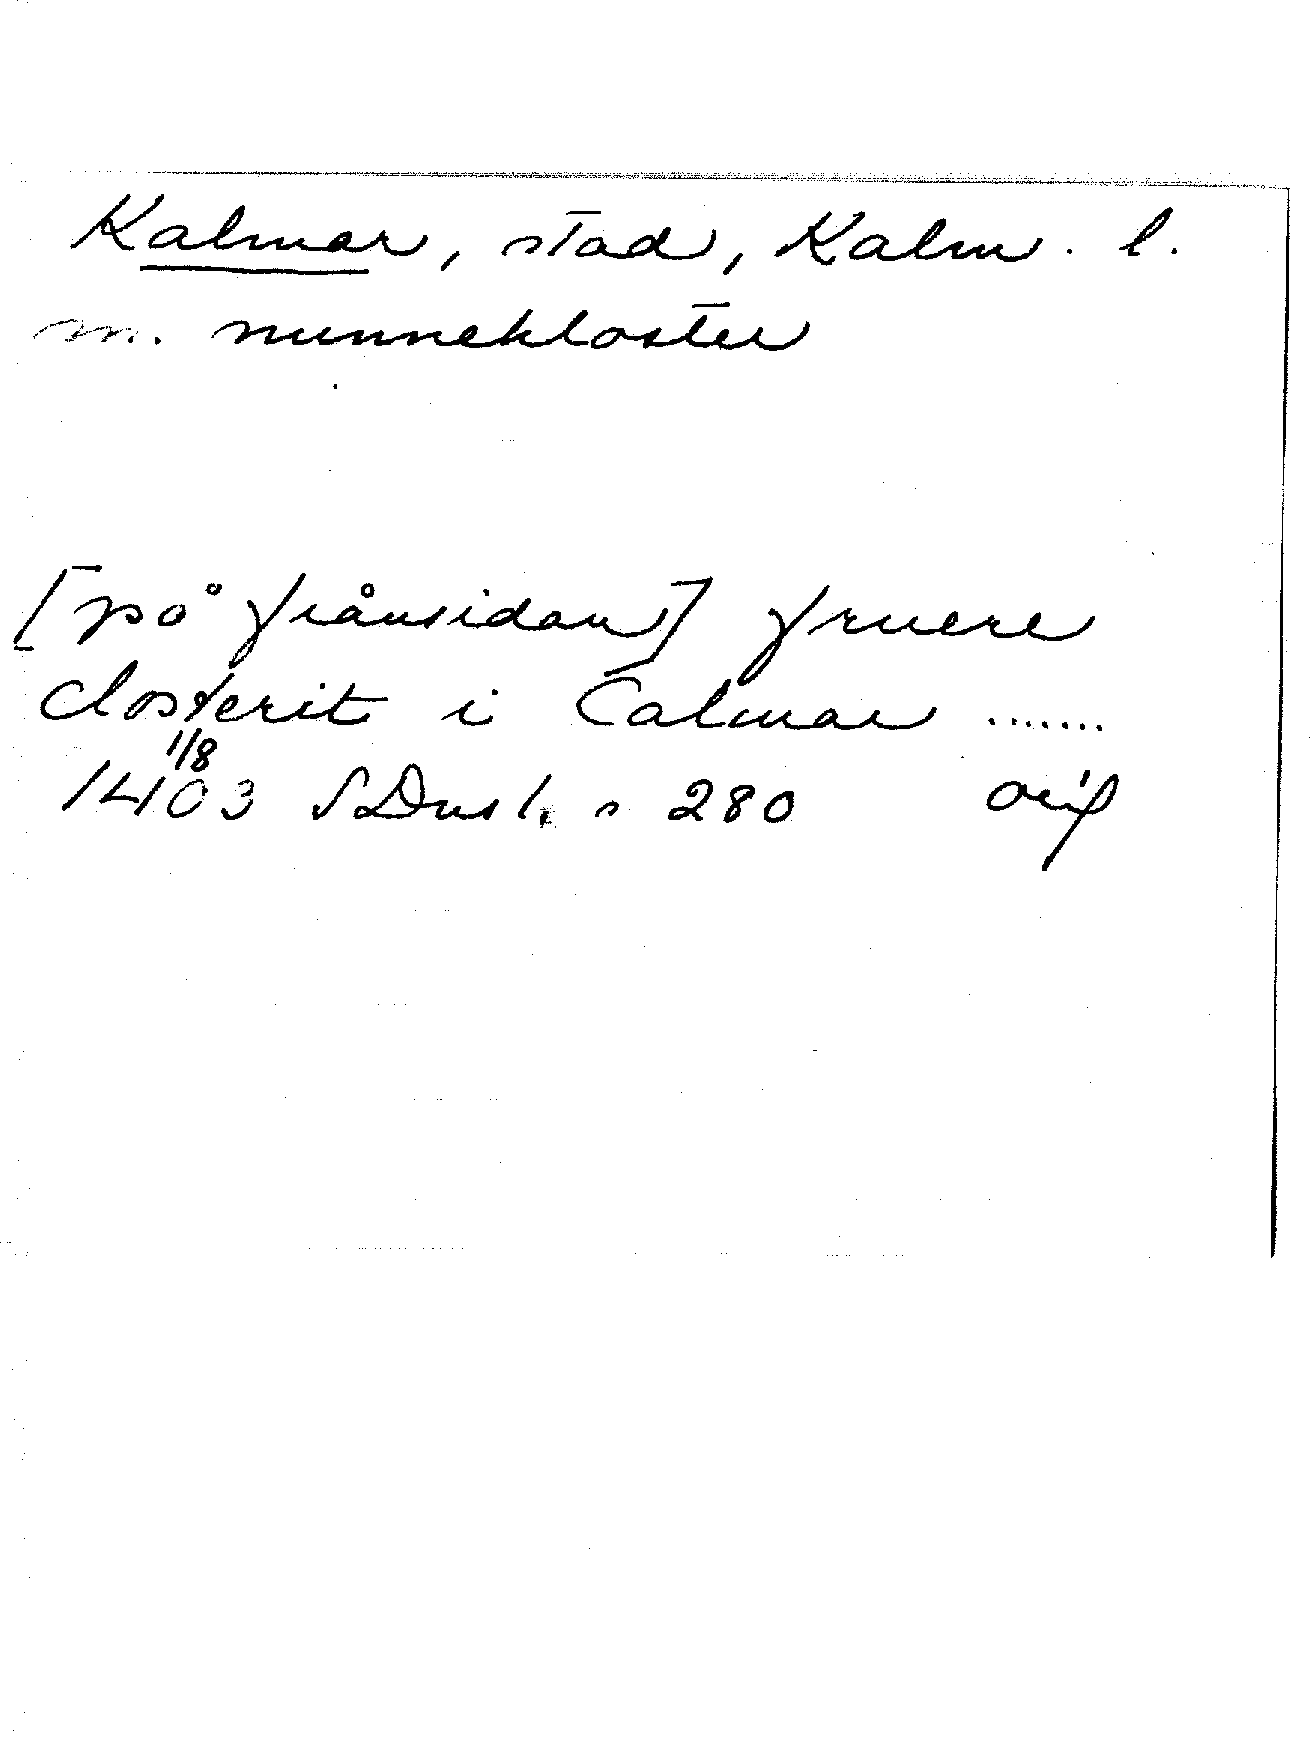 Kalmar, stad, Kalm. l.
m. nunnekloster
[på frånsidan] fruere
closterit i Calmar .......
1/8
1403 SDns 1, s 280 orig